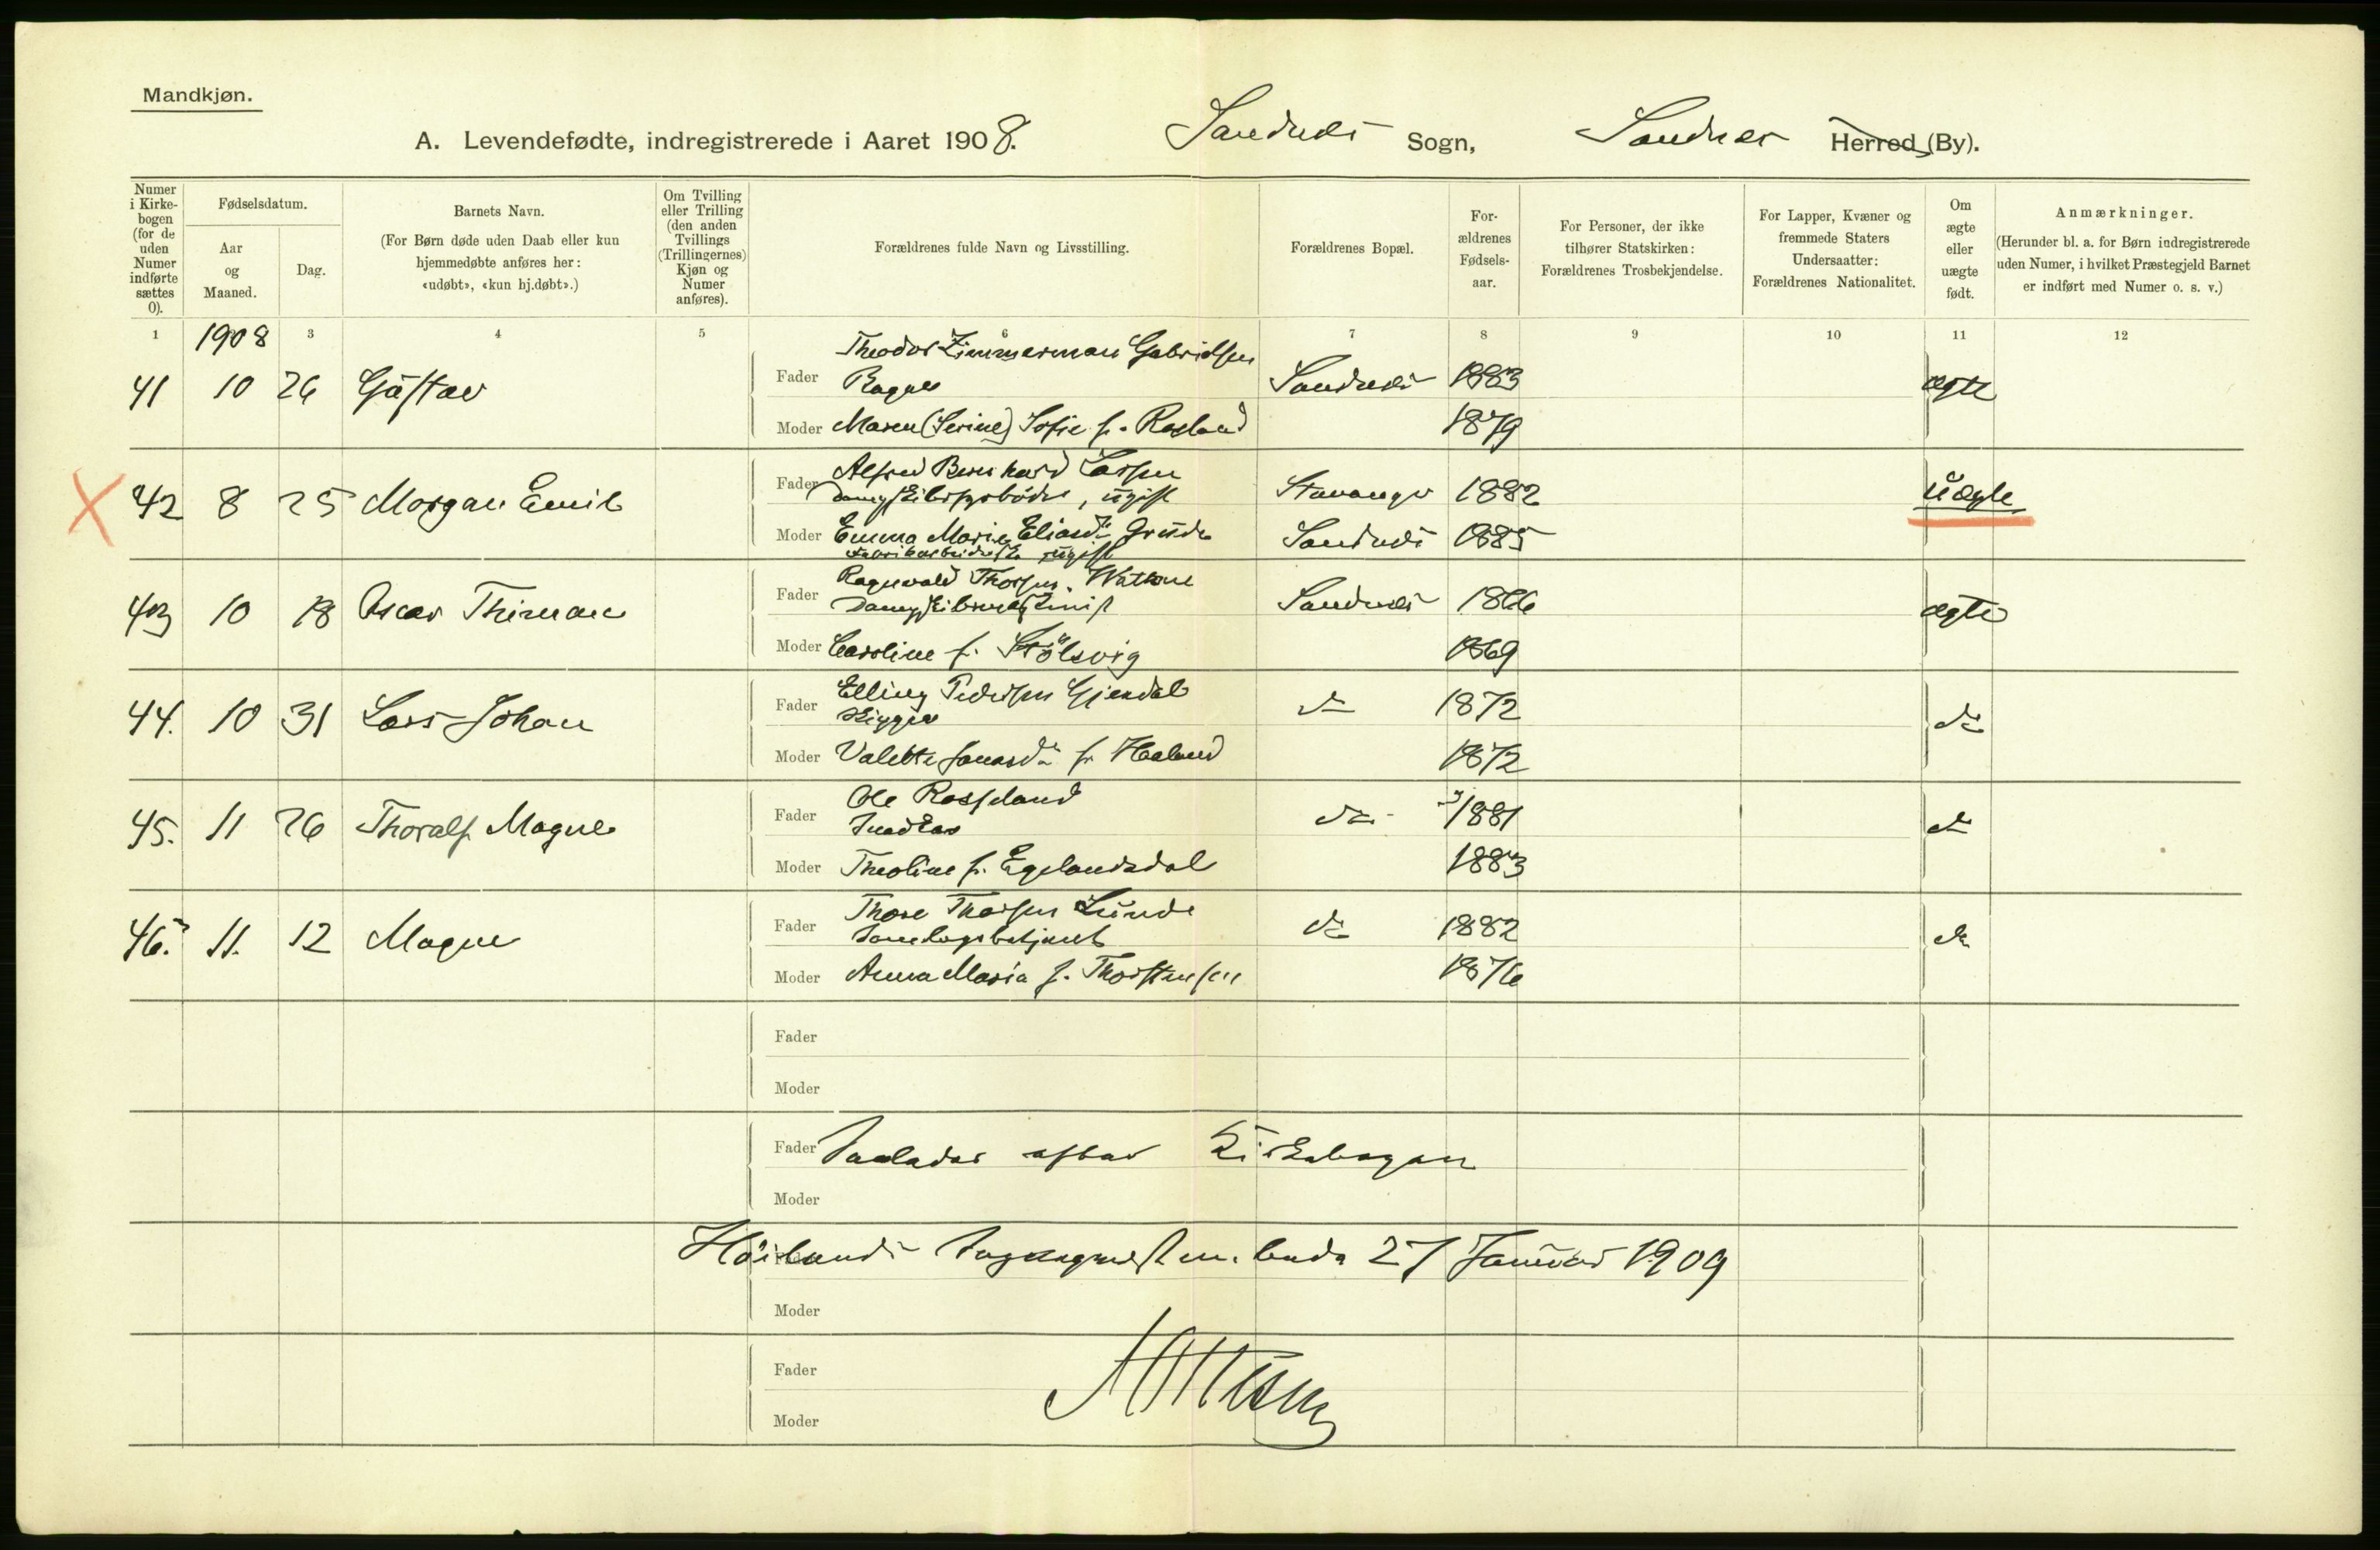 Mandkjøn.
A. Levendefødte, indregistrerede i Aaret 1908. Sandnes Sogn, Sandnes Herred (By).
Numer i Kirke-bogen (for de uden Numer indførte sættes 0).
Fødselsdatum.
Aar og Maaned.
Dag.
Barnets Navn.
(For Børn døde uden Daab eller kun hjemmedøbte anføres her: «udøbt», «kun hj.døbt».)
Om Tvilling eller Trilling (den anden Tvillings (Trillingernes) Kjøn og Numer anføres).
Forældrenes fulde Navn og Livsstilling.
Forældrenes Bopæl.
For-ældrenes Fødsels-aar.
For Personer, der ikke tilhører Statskirken: Forældrenes Trosbekjendelse.
For Lapper, Kvæner og fremmede Staters Undersaatter: Forældrenes Nationalitet.
Om ægte eller uægte født.
Anmærkninger.
(Herunder bl. a. for Børn indregistrerede uden Numer, i hvilket Præstegjeld Barnet er indført med Numer o. s. v.)
1 1908 3 4 5 6 7 8 9 10 11 12
Theodor Zimmerman Gabrielsen
41 10 26 Gustav Fader Bager Sandnes 1883 ægte
Moder Maren (Serine) Sofie f. Rosland 1879
Alfred Bernhard Larsen
X 42 8 25 Morgan Emil Fader Dampskibsfyrbøder, ugift Stavanger 1882 uægte
Moder Emma Marie Eliasdtr Grude Sandnes 1885
Fabrikarbeiderske ugift
Ragnvald Thorsen
43 10 18 Oscar Thirman Fader Dampskibsmaskinist Sandnes 1866 ægte
Moder Caroline f. Stölsvig 1869
Elling Pedersen Gjesdal
44. 10 31 Lars Johan Fader Skipper do 1872 do
Moder Valette Jonasdtr f. Haaland 1872
Ole Rosseland
45. 11 26 Thoralf Magne Fader Snedker do 1881 do
Moder Theoline f. Egelandsdal 1883
Thore Thorsen Lunde
46. 11. 12 Magne Fader Samlagsbetjent do 1882 do
Moder Anna Maria f. Thorstensen 1876
Fader
Moder
Fader efter Kirkebogen
Moder
Höilands Sognepræstembede 27 Januar 1909
Moder
Fader
Moder